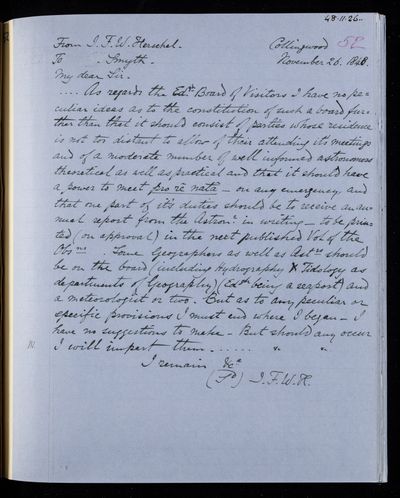 48·11·26
From J. F. W. Herschel. Collingwood 52
To Smyth. November 26. 1848.
My dear Sir.
.... As regards the Edr. Board of Visitors I have no pe=
culiar ideas as to the constitution of such a board fur-
ther than that it should consist of parties whose residence
is not too distant to allow of their attending its meetings
and of a moderate number of well informed astronomers
theoretical as well as practical and that it should have
a power to meet pro re nata – on any emergency and
that one part of its duties should be to receive an an-
nual report from the Astronr. in writing – to be prin-
ted (on approval) in the next published Vol of the
Obsns. Some Geographers as well as Astrs should
be on the board (including Hydrography & Tidology as
departments of Geography) (Edr being a seaport) and
a meteorologist or two. But as to any peculiar or
specific provisions I must end where I began – I
have no suggestions to make – But should any occur
I will impart them ......
I remain &c
(Sd) J. F. W. H.